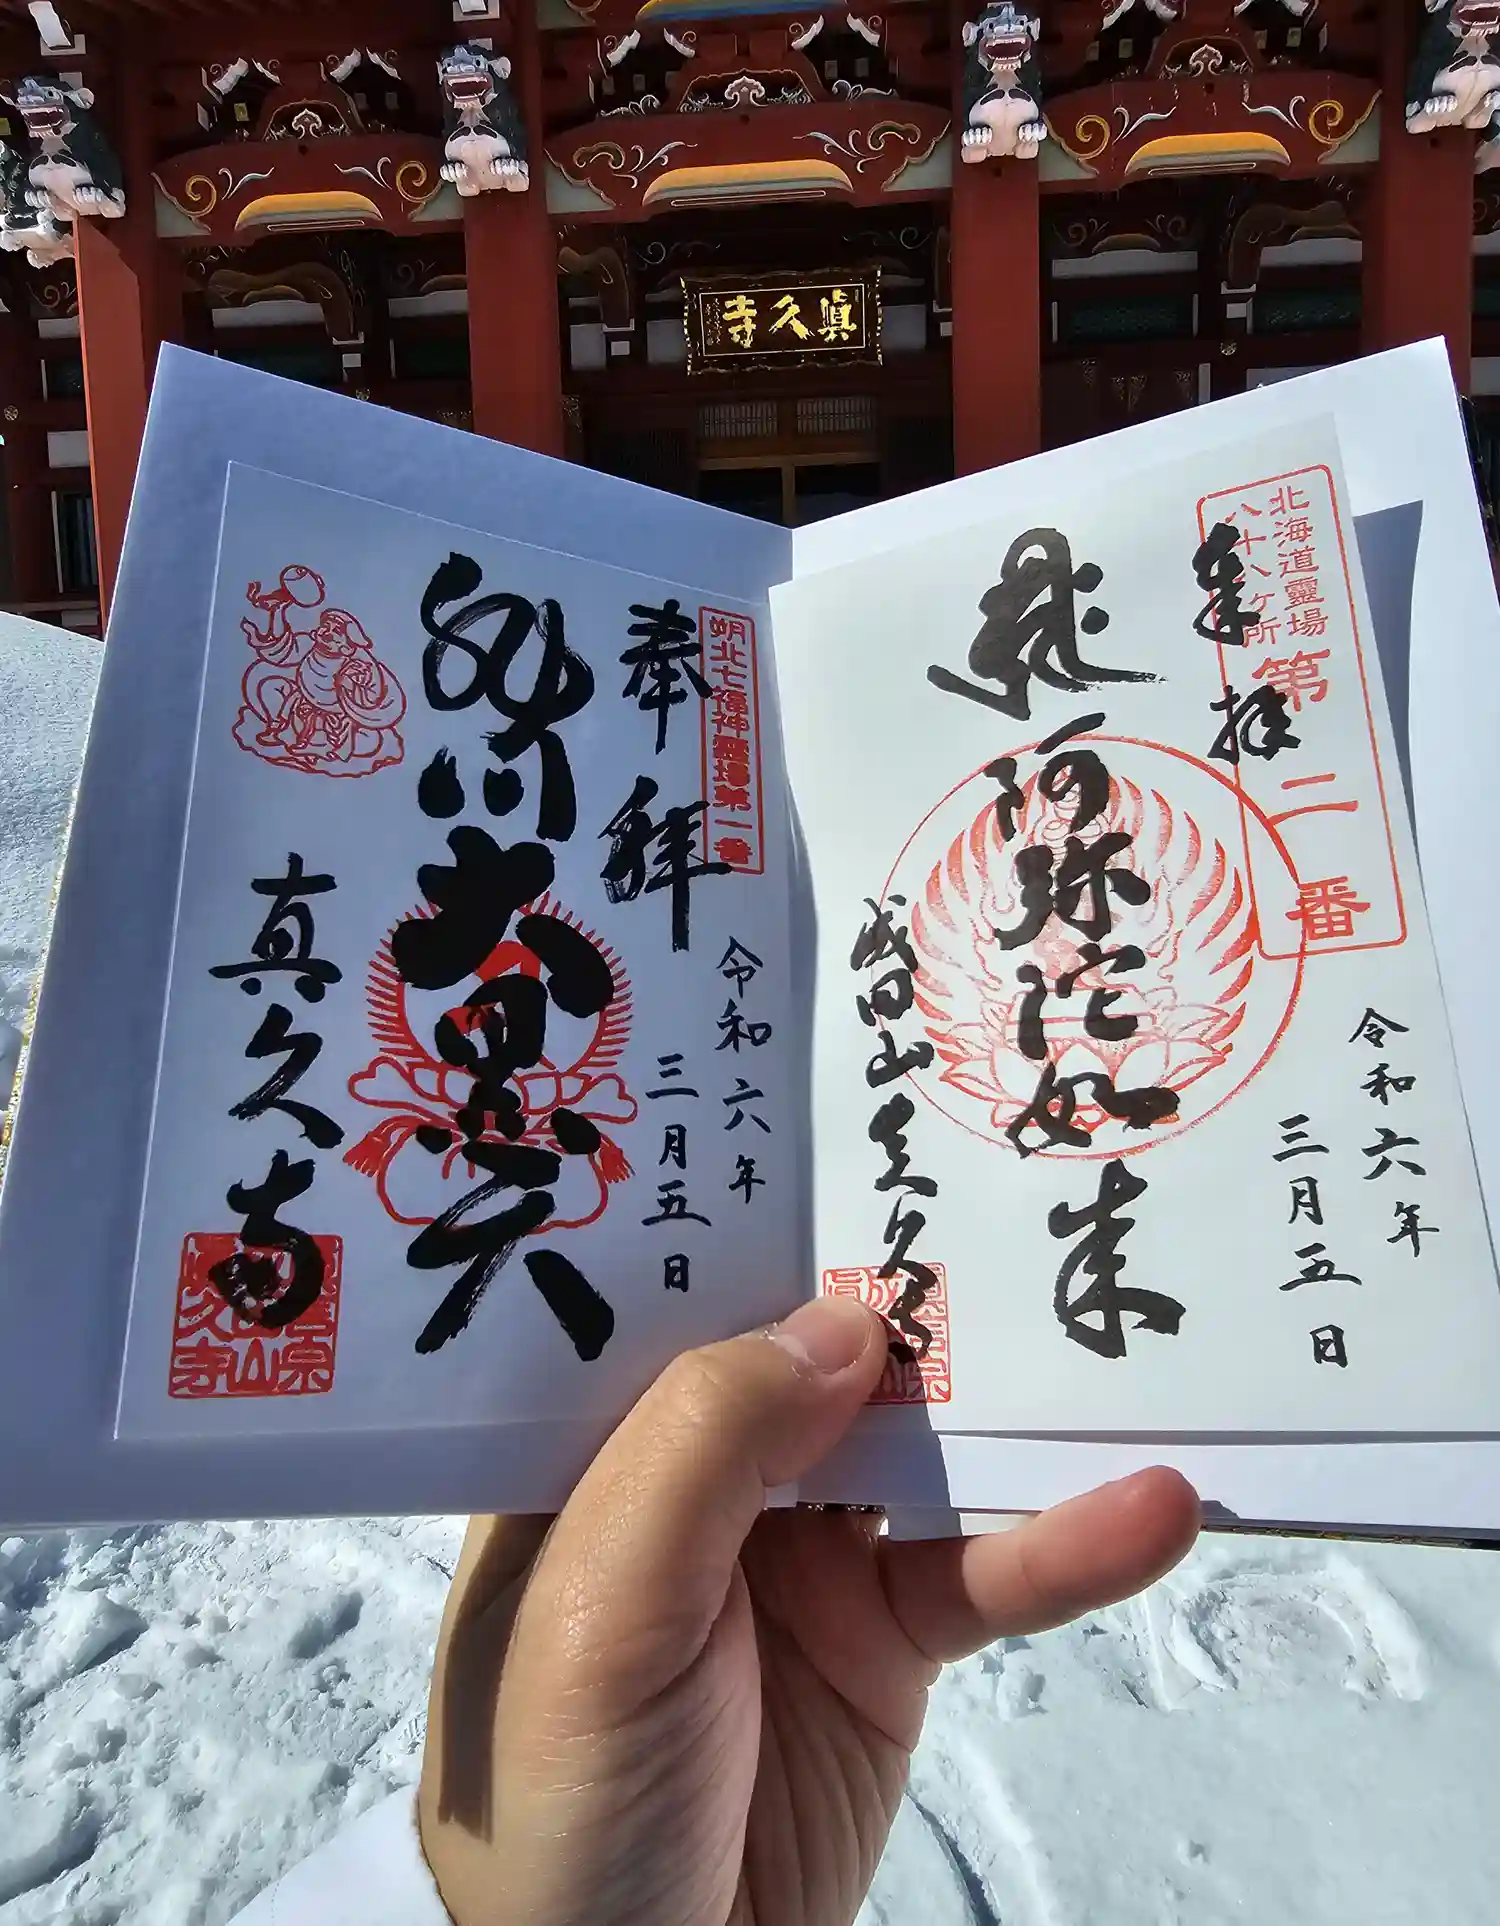 眞久寺
北海道靈場
八十八ヶ所
第二番
奉拝
令和六年
三月五日
阿弥陀如来
成田山真久寺
朔北七福神霊場第一番
奉拝
令和六年
三月五日
大黒天
真久寺